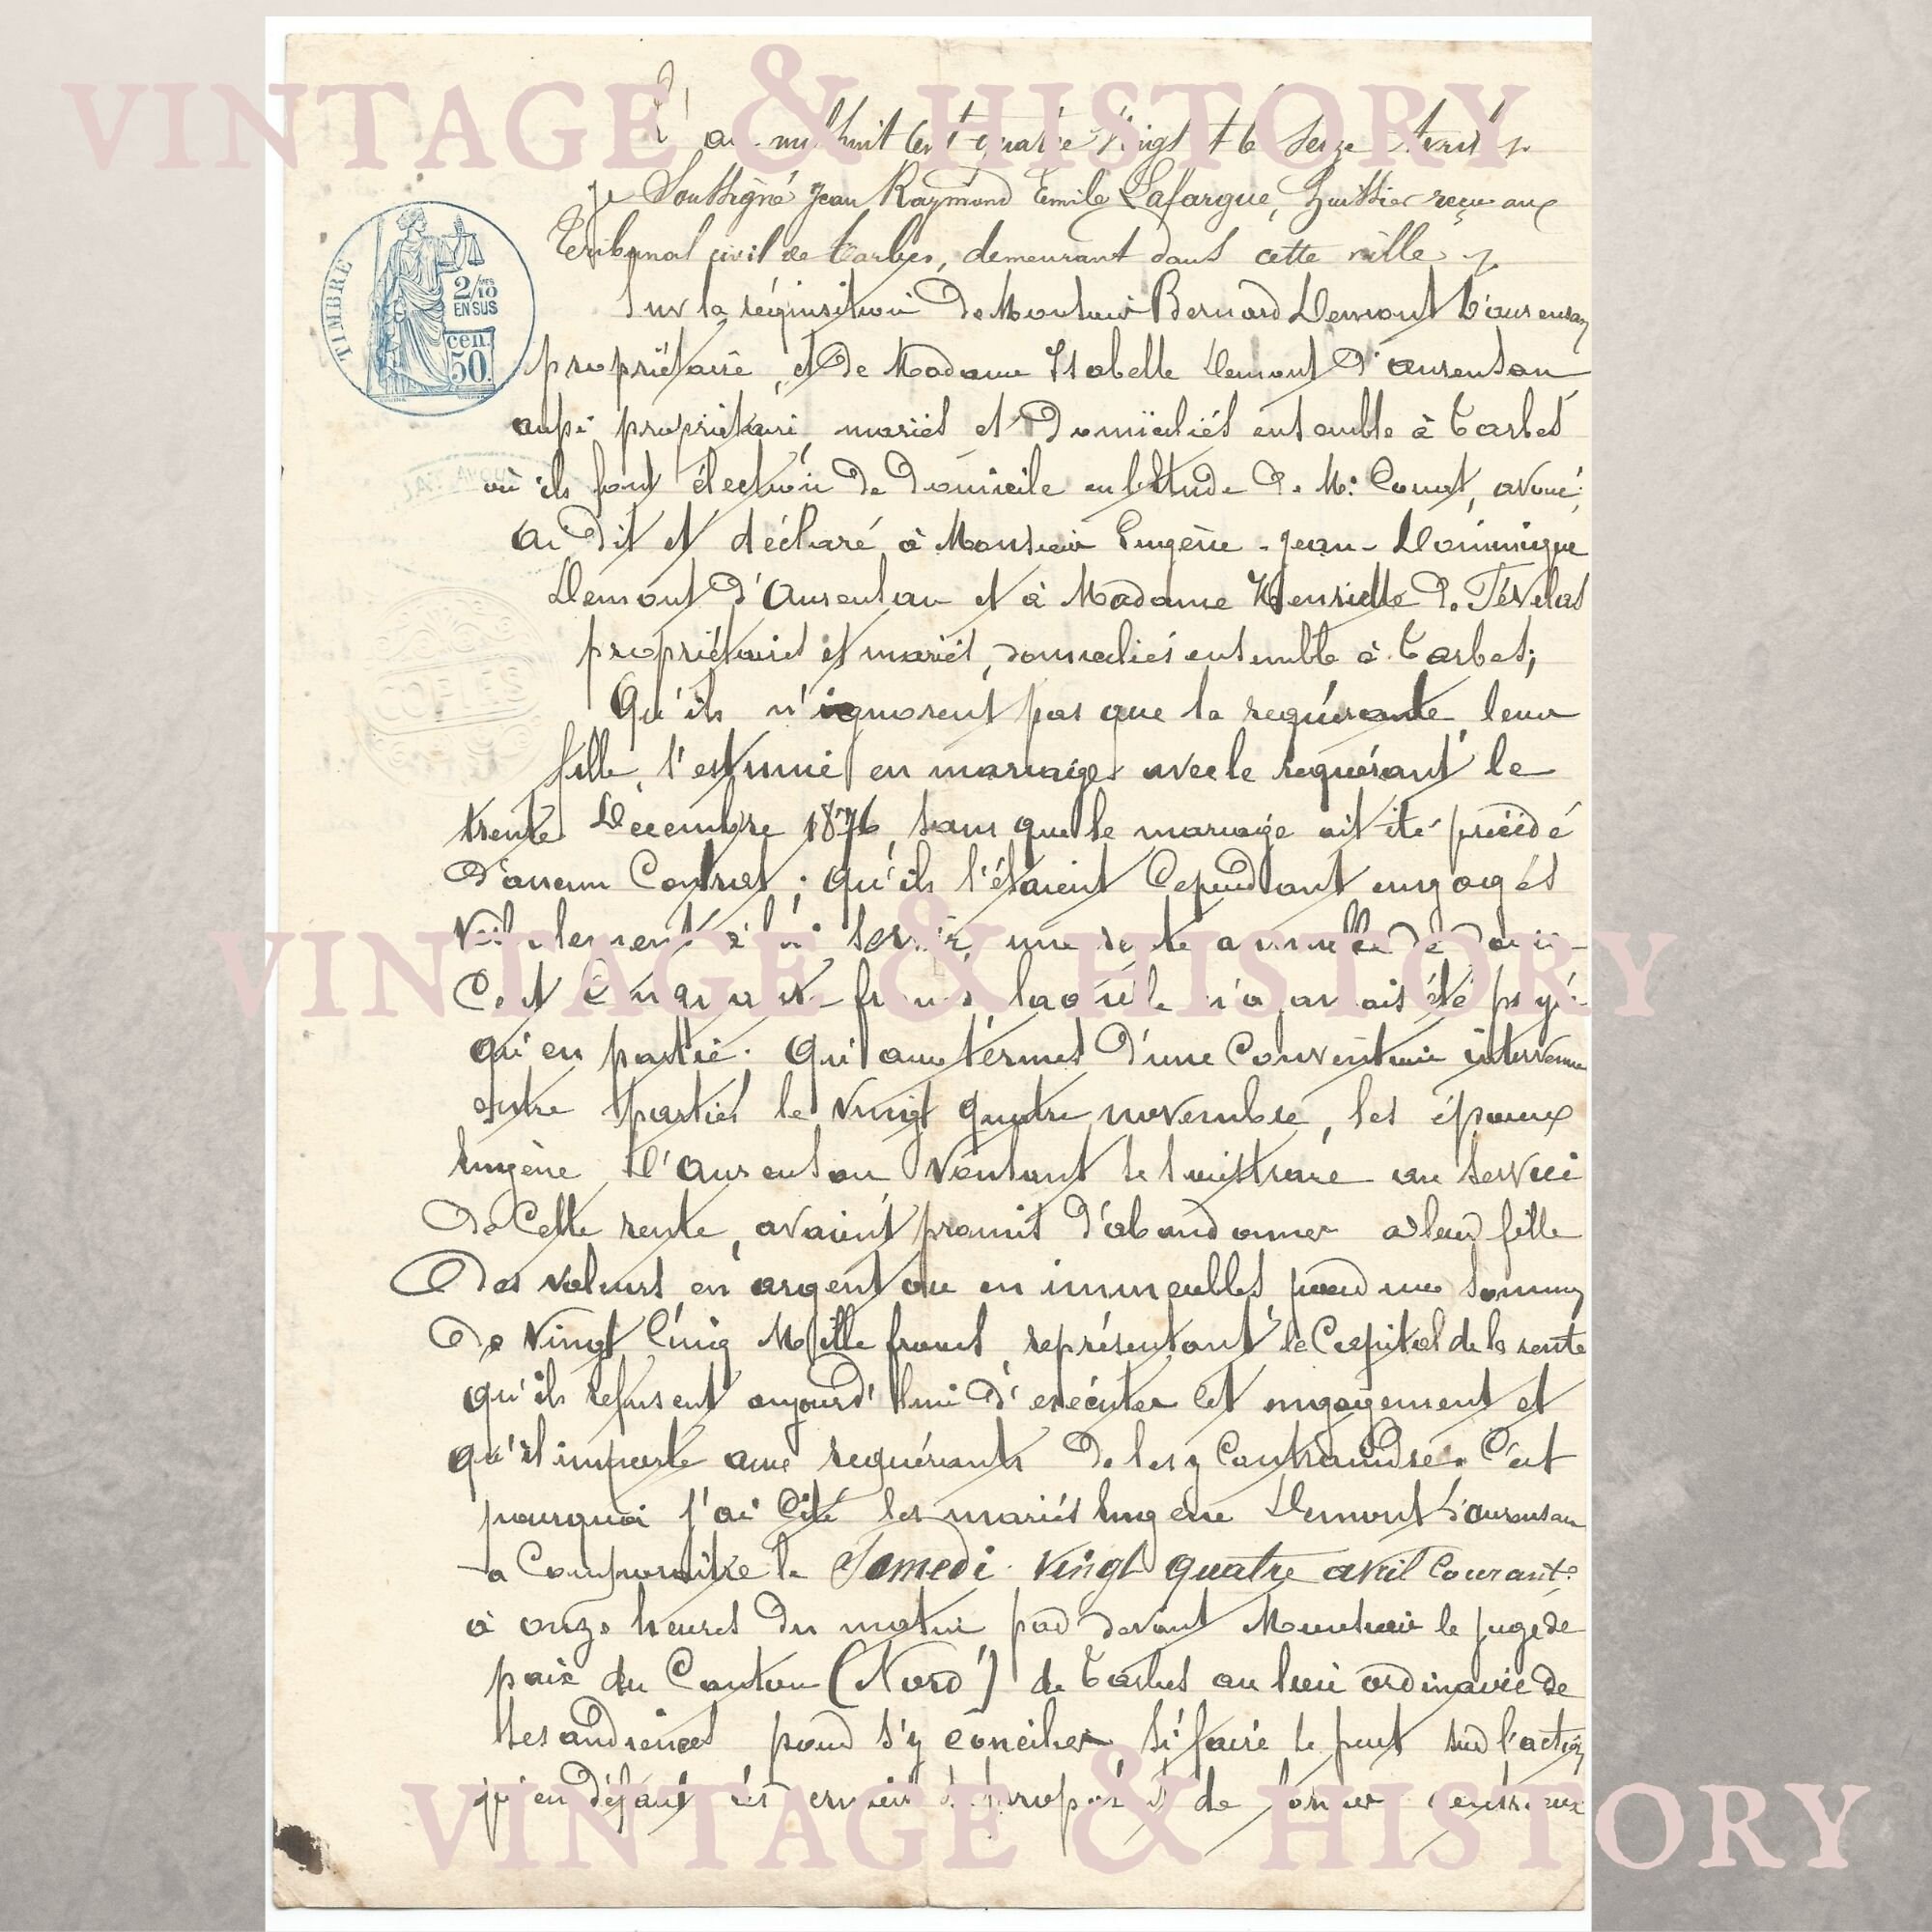 VINTAGE & HISTORY
L'an mil huit Cent quatre Vingt et le Seize Avril
je Soussigné Jean Raymond Emile Lafargue, Huissier reçu au
Tribunal civil de Tarbes, demeurant dans cette ville
TIMBRE
2/10 EN SUS
cen. 50.
Sur la réquisition de Monsieur Bernard Demont d'aurensan
propriétaire, et de Madame Isabelle Demont d'aurensan
aussi propriétaire, mariés et domiciliés ensemble à Tarbes
où ils font élection de domicile en l'Etude de Me avoué;
ai dit et déclaré à Monsieur Eugène-Jean-Dominique
Demont d'Aurensan et à Madame Henriette de
propriétaires et mariés, domiciliés ensemble à Tarbes;
COPIES
Qu'ils n'ignorent pas que la requérante, leur
fille, s'est unie en mariage avec le requérant le
trente Décembre 1876, sans que le mariage ait été précédé
d'aucun Contrat; qu'ils s'étaient Cependant engagés
verbalement à lui servir une rente annuelle de
VINTAGE & HISTORY
Cent Cinquante francs, laquelle n'a jamais été payée
qu'en partie. Qu'aux termes d'une Convention intervenue
entre parties le vingt quatre novembre, les époux
Eugène d'Aurensan voulant se soustraire au service
de Cette rente, avaient promis d'abandonner à leur fille
des valeurs en argent ou en immeubles, pour une somme
de Vingt Cinq Mille francs, représentant le Capital de la rente
qu'ils refusent aujourd'hui d'exécuter Cet engagement et
qu'il importe aux requérants de les y Contraindre. C'est
pourquoi j'ai Cité les mariés Eugène Demont d'aurensan
à Comparaître le Samedi vingt quatre avril Courant
à onze heures du matin par devant Monsieur le juge de
paix du Canton (Nord) de Tarbes au lieu ordinaire de
ses audiences pour s'y concilier si faire se peut sur l'action
qu'en défaut ces derniers se proposent de former contre eux
VINTAGE & HISTORY